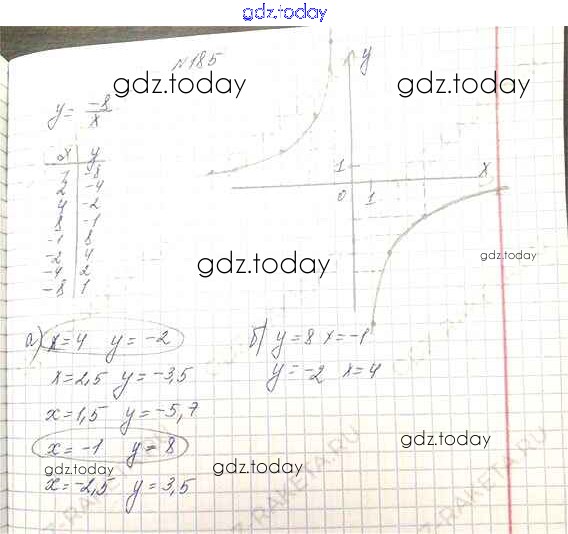 gdz.today
№185
gdz.today
gdz.today
y = -8/x
x y
1 -8
2 -4
4 -2
8 -1
-1 8
-2 4
-4 2
-8 1
y
1
x
0 1
gdz.today
gdz.today
а) x=4 y=-2
x=2,5 y=-3,5
x=1,5 y=-5,7
x=-1 y=8
x=-2,5 y=3,5
б) y=8 x=-1
y=-2 x=4
gdz.today
gdz.today
gdz.today
Z-RAKETA.RU
Z-RAKETA.RU